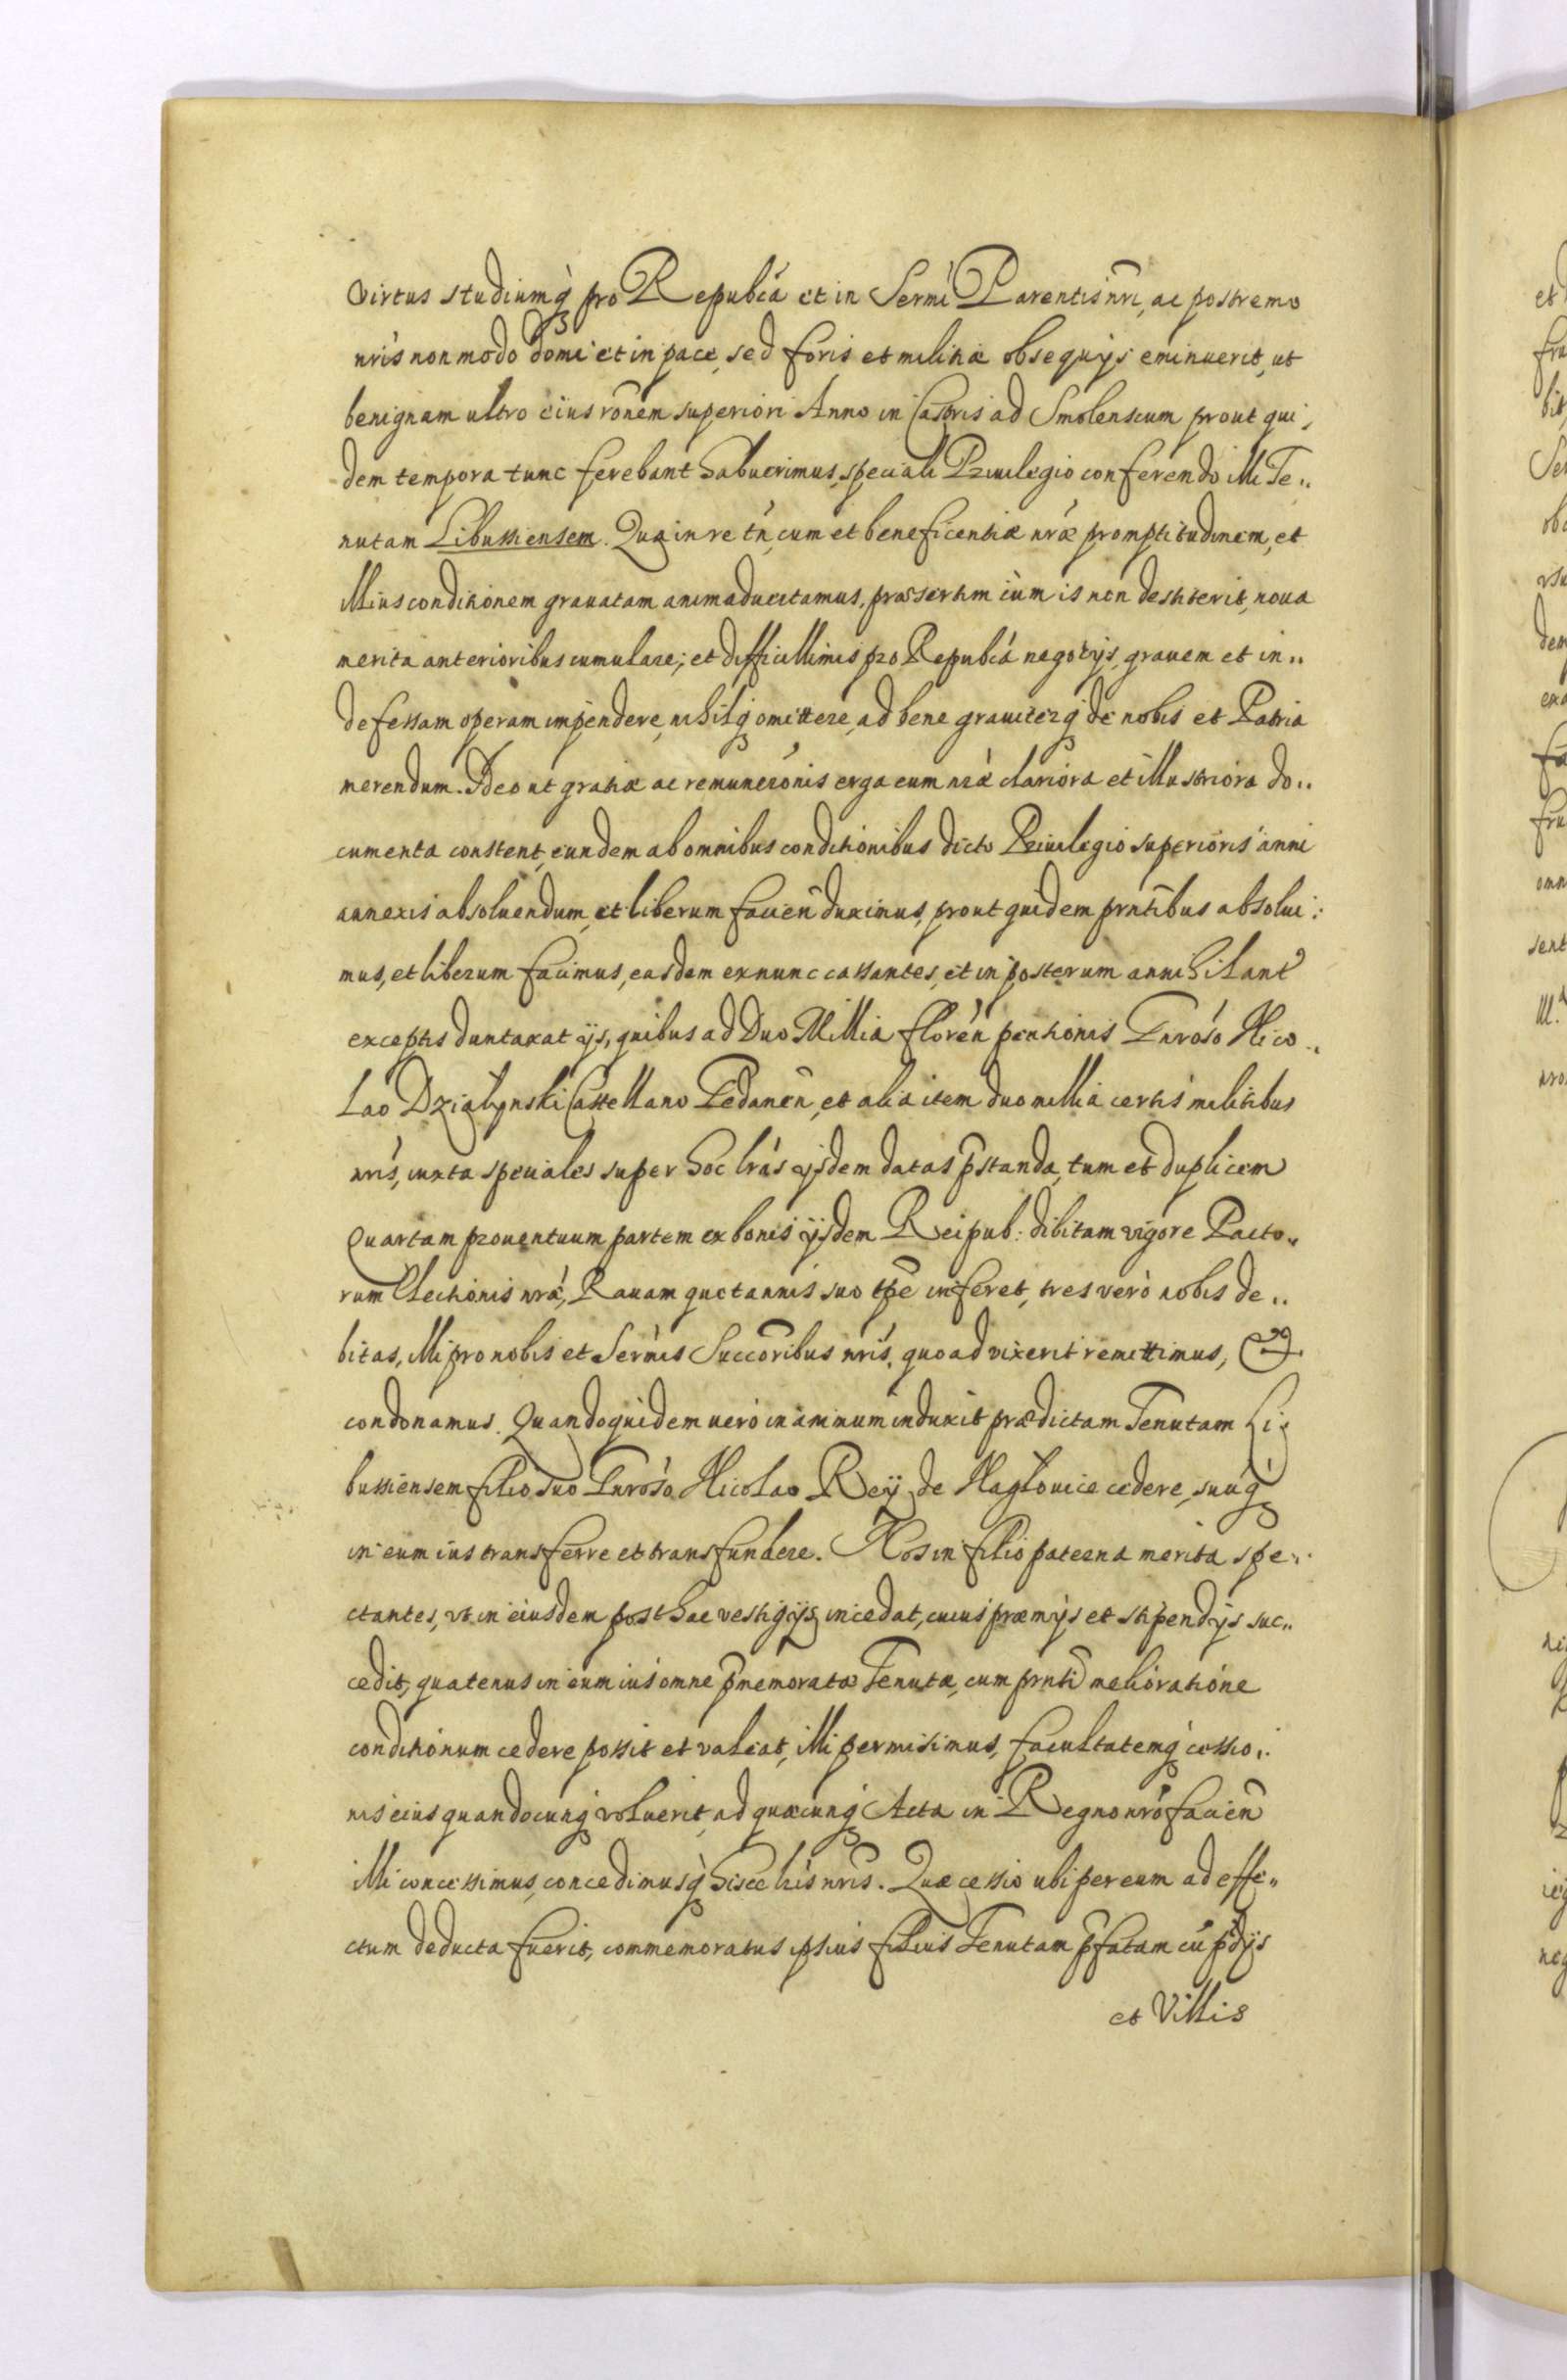 Virtus studiumq̀ pro Repubĉa et in Sermi Parentis nri, ac postremo
nris non modo domi et in pace, sed foris et militiæ obsequijs eminuerit, ut
benignam ultro eius rônem superiori Anno in Castris ad Smolenscum prout qui,
dem tempora tunc ferebant habuerimus, speciali Priuilegio conferendo illi Te..
nutam Libussiensem. Qua in re tn̂, cum et beneficentiæ nræ promptitudinem, et
illius conditionem grauatam animaduertamus, præsertim cùm is non destiterit, noua
merita anterioribus cumulare; et difficillimis pro Repubĉa negotijs, grauem et in..
defessam operam impendere, nihilq omittere, ad bene grauiterq de nobis et Patria
merendum. Ideo ut gratiæ ac remunerônis erga eum nræ clariora et illustriora do..
cumenta constent, eundem ab omnibus conditionibus dicto Priuilegio superioris anni
annexis absoluendum, et liberum facien̂ duximus, prout quidem prntibus absolui:
mus, et liberum facimus, easdem ex nunc cassantes, et in posterum annihilant
exceptis duntaxat ijs, quibus ad Duo Millia floren̂ pensionis Gnroso Nico..
lao Dzialynski Castellano Gedanen̂, et alia item duo millia certis militibus
nris, iuxta speciales super hoc lrâs ijsdem datas p̂standa, tum et duplicem
Quartam prouentuum partem ex bonis ijsdem Reipub: dibitam vigore Pacto..
rum Electionis nræ, Rauam quotannis suo tp̂e inferet, tres verò nobis de..
bitas, illi pro nobis et Serm̂is Succôribus nris, quoad vixerit remittimus, &
condonamus. Quandoquidem uerò in animum induxit prædictam Tenutam Li,
bussiensem filio suo Gnroso Nicolao Reÿ de Nagłouice cedere, suûq̀
in eum ius transferre et transfundere. Nos in filio paterna merita spe..
ctantes, vt in eiusdem posthac vestigijs incedat, cuius præmijs et stipendijs suc..
cedit, quatenus in eum ius omne p̂memoratæ Tenutæ, cum prnti melioratione
conditionum cedere possit et valeat, illi permisimus, facultatemq̀ cessio..
nis eius quandocunq voluerit, ad quæcunq Acta in Regno nrô facien̂
illi concessimus, concedimusq̀ hisce lrîs nris. Quæ cessio ubi per eum ad effe..
ctum deducta fuerit, commemoratus ipsius filius Tenutam p̂fatam cû p̂dijs
et Villis